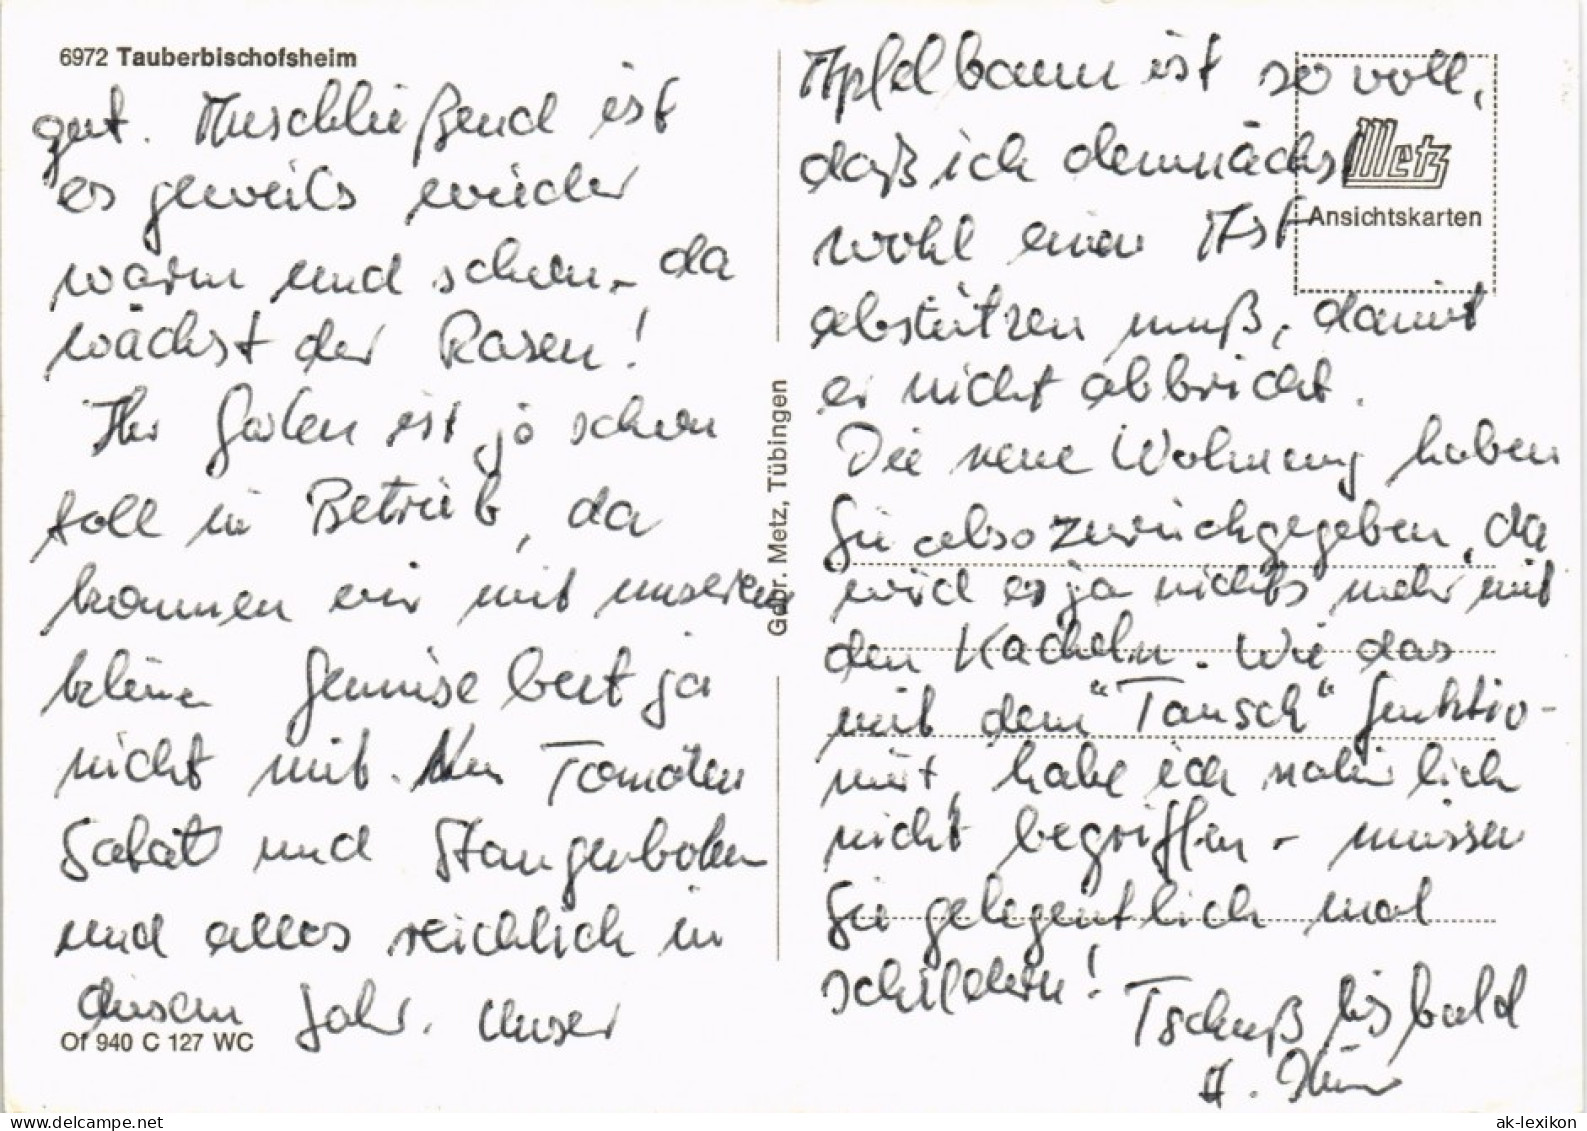 6972 Tauberbischofsheim
gut. Anschließend ist
es jeweils wieder
warm und schön - da
wächst der Rasen!
Ihr Garten ist ja schon
toll in Betrieb, da
kommen wir mit unserem
kleinen Gemüsebeet ja
nicht mit. Nur Tomaten
Salat und Stangenbohnen
und alles reichlich in
diesem Jahr. Unser
Of 940 C 127 WC
Gebr. Metz, Tübingen
Apfelbaum ist so voll,
daß ich demnächst
wohl einen Ast
abstützen muß, damit
er nicht abbricht.
Die neue Wohnung haben
Sie also zurückgegeben, da
wird es ja nichts mehr mit
den Kacheln. Wie das
mit dem "Tausch" funktio-
niert, habe ich natürlich
nicht begriffen - müssen
Sie gelegentlich mal
schildern!
Tschüß bis bald
A.
Metz
Ansichtskarten
ak-lexikon